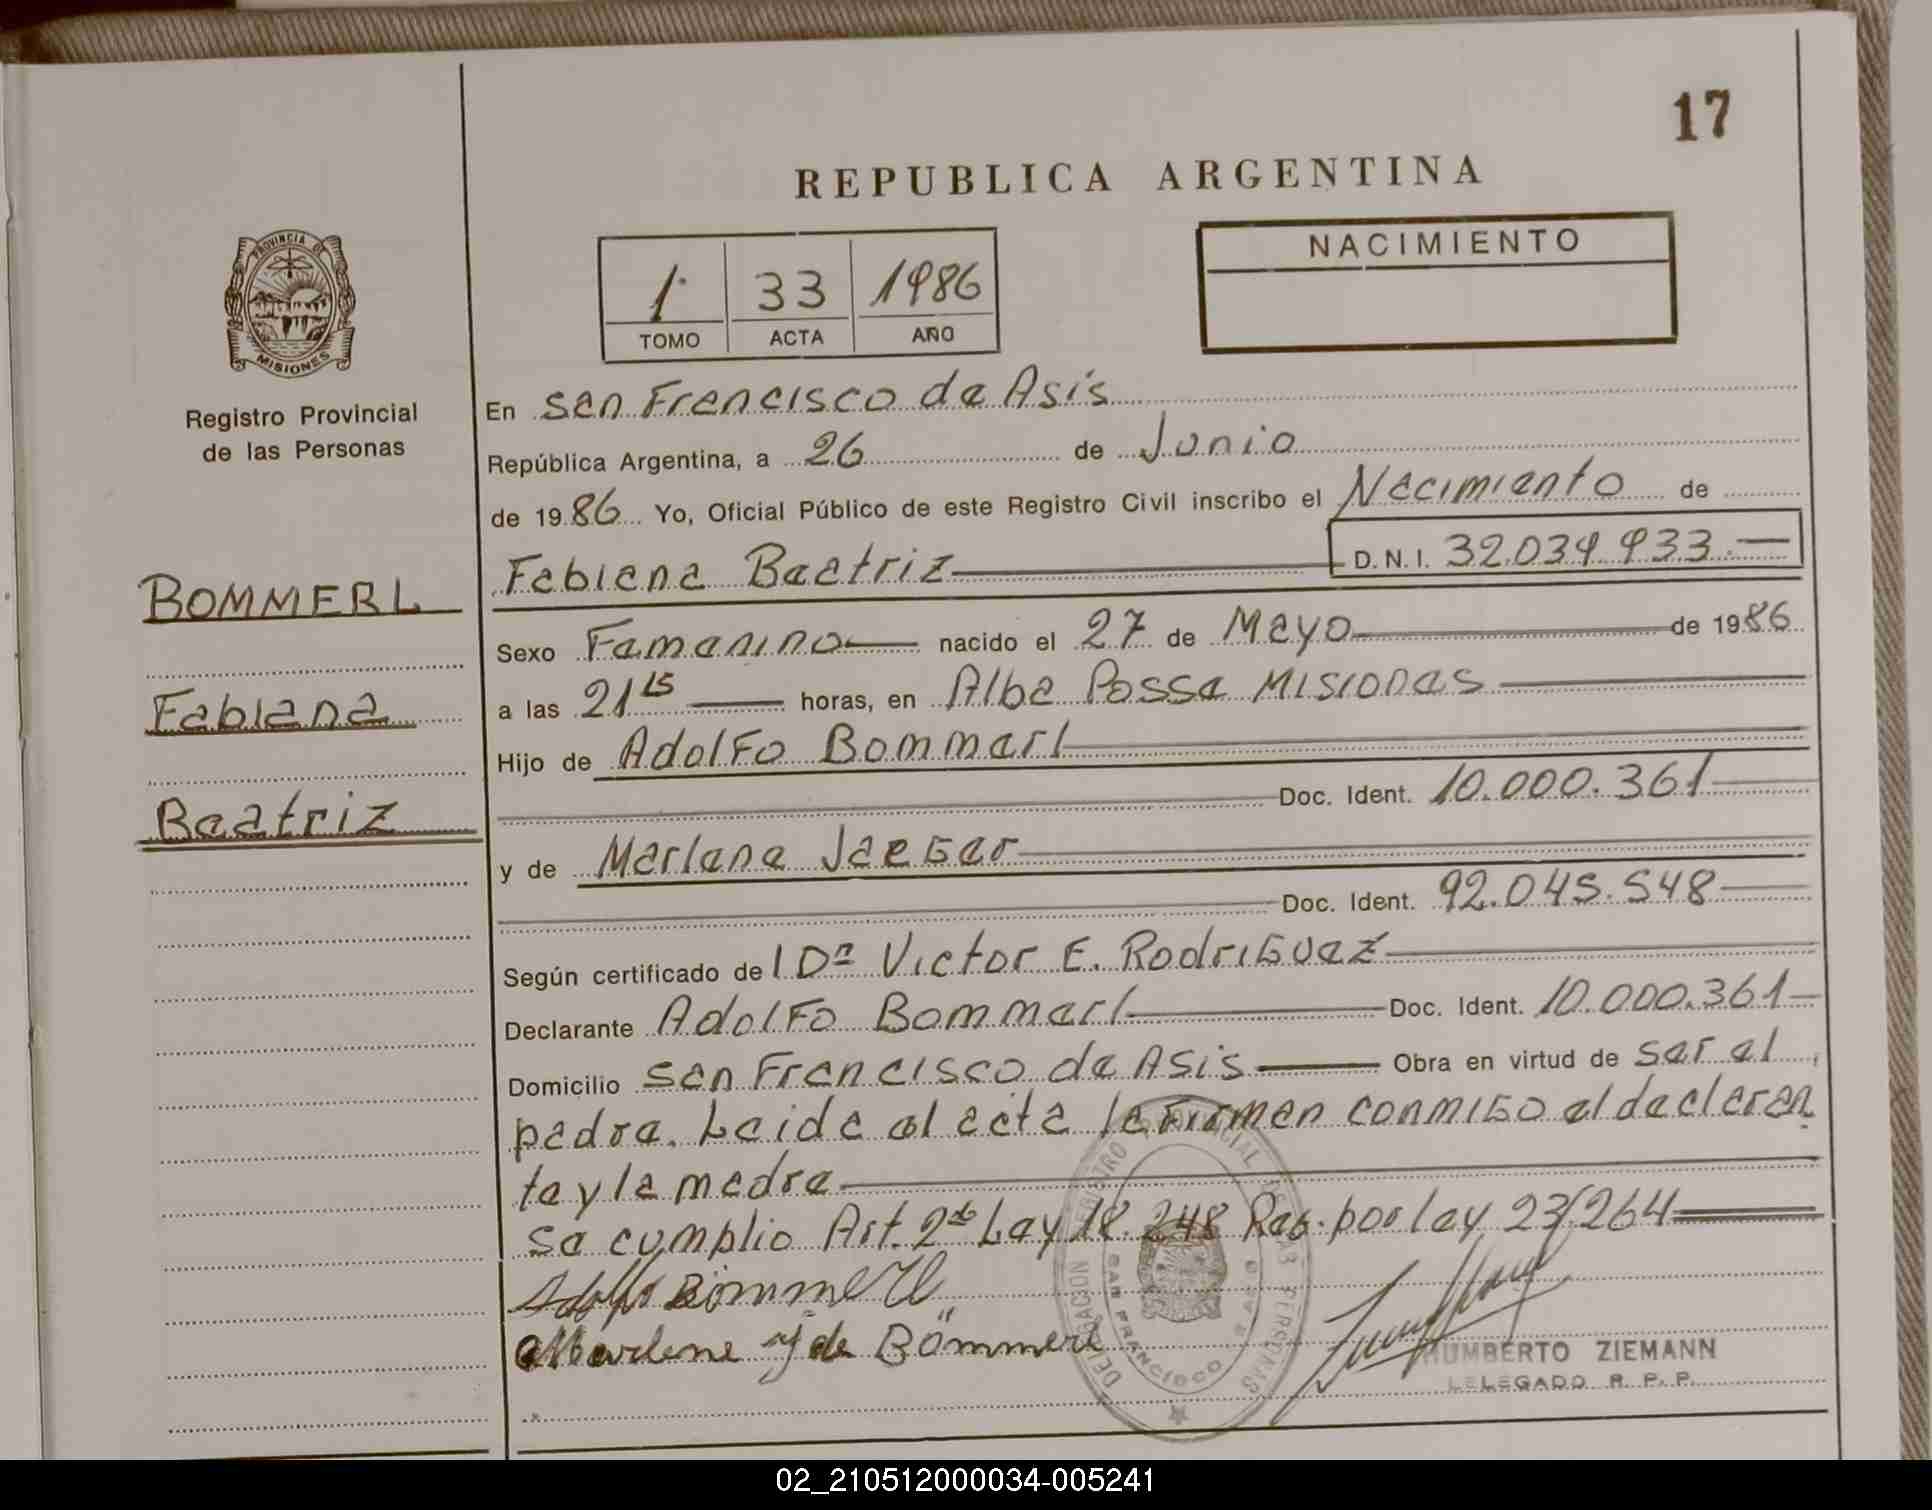 17
REPUBLICA ARGENTINA
PROVINCIA DE
MISIONES
Registro Provincial
de las Personas
1· 33 1986
TOMO ACTA AÑO
NACIMIENTO
En San Francisco de Asis
República Argentina, a 26 de Junio
de 1986 Yo, Oficial Público de este Registro Civil inscribo el Nacimiento de
Fabiana Beatriz D.N.I. 32.034.933.—
BOMMERL
Fabiana
Beatriz
Sexo Femenino nacido el 27 de Mayo de 1986
a las 21 15 horas, en Alba Possa Misiones
Hijo de Adolfo Bommerl
Doc. Ident. 10.000.361
y de Marlene Jaeger
Doc. Ident. 92.045.548
Según certificado del Dr Victor E. Rodriguez
Declarante Adolfo Bommerl Doc. Ident. 10.000.361
Domicilio San Francisco de Asis Obra en virtud de ser el
padre. Leida el acta la firman conmigo el declaran
te y la madre
Se cumplio Art. 2do Ley 18.248 Reg. por ley 23/264
Adolfo Bömmerl
Marlene J de Bömmerl
DELEGACION REGISTRO PROVINCIAL DE LAS PERSONAS
SAN FRANCISCO
HUMBERTO ZIEMANN
DELEGADO R. P. P.
02_210512000034-005241